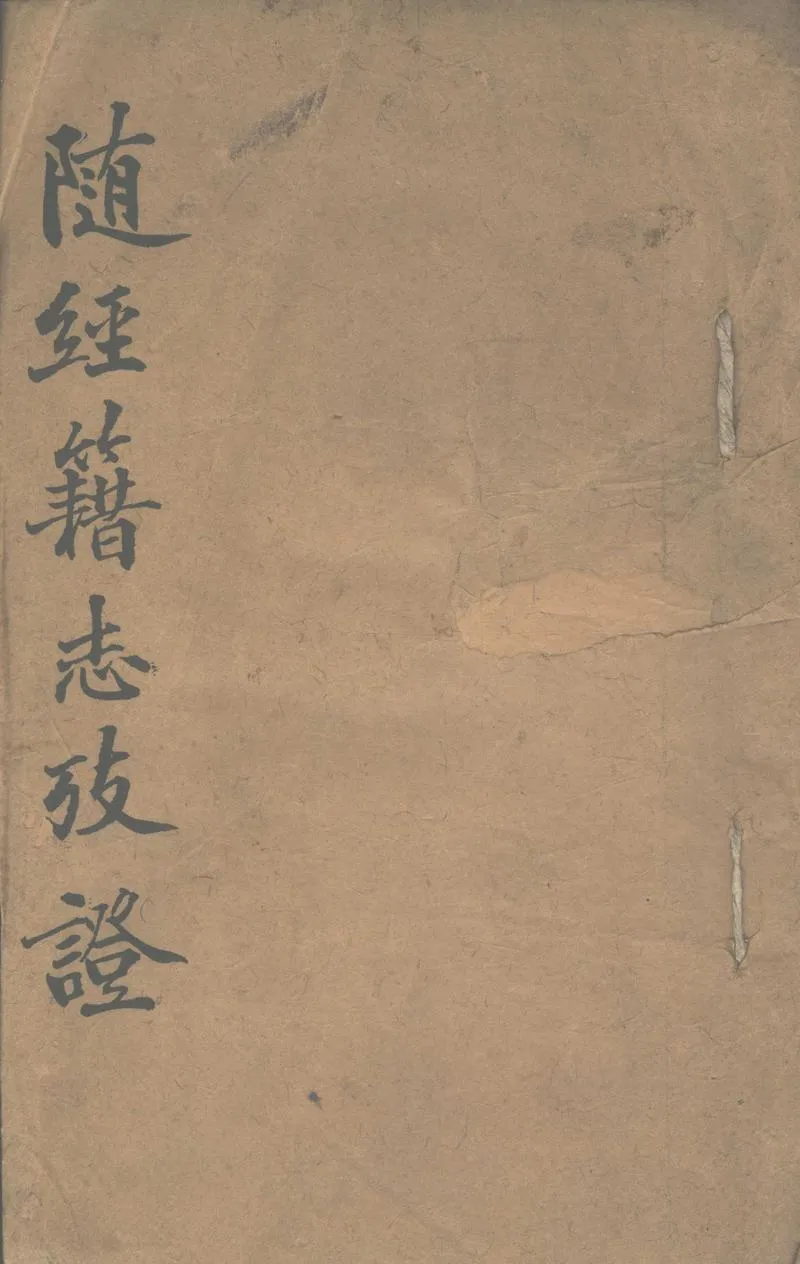 随經籍志攷證